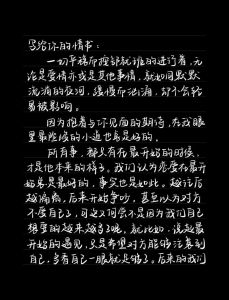 写给你的情书:
一切平稳而按部就班的进行着,无
论是爱情亦或是其他事情,就如同默默
流淌的夜河,缓慢而汹涌,却不会轻
易被影响。
因为抱着与你见面的期待,在我眼
里最险峻的小道也总是好的。
所有事,都只有在最开始的时候,
才是他本来的样子。我们认为恋爱在最开
始总是最好的,事实也是如此。越往后
越偏离,后来开始争吵,甚至以为对方
不爱自己了,可这又何尝不是因为我们自己
想要的越来越多了呢。就比如,说起最
开始的遇见,只是希望对方能够注意到
自己,多看自己一眼就足够了。后来的我们